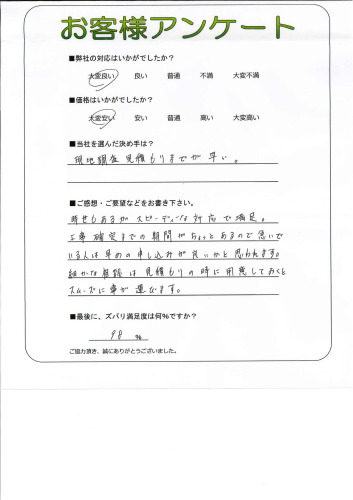 お客様アンケート
■弊社の対応はいかがでしたか?
大変良い 良い 普通 不満 大変不満
■価格はいかがでしたか?
大変安い 安い 普通 高い 大変高い
■当社を選んだ決め手は?
現地調査 見積もりまでが早い。
■ご感想・ご要望などをお書き下さい。
時世もあるがスピーディーな対応で満足。
工事確定までの期間がちょっとあるので急いで
いる人は早めの申し込みが良いかと思われます。
細かな相談は見積もりの時に用意しておくと
スムーズに事が運びます。
■最後に、ズバリ満足度は何%ですか?
98 %
ご協力頂き、誠にありがとうございました。